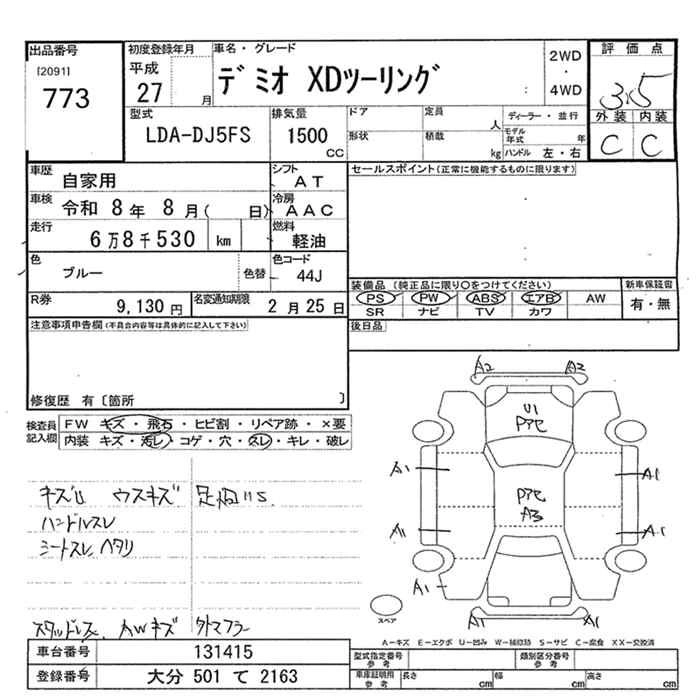 出品番号 [2091] 773
初度登録年月 平成 27 月
車名・グレード デミオ XDツーリング
2WD ・ 4WD
評価点 3.5
外装 内装
C C
型式 LDA-DJ5FS
排気量 1500 CC
ドア 形状
定員 人
積載 kg
ディーラー・並行
モデル年式 年
ハンドル 左・右
車歴 自家用
シフト AT
車検 令和 8年 8月( 日)
冷房 AAC
走行 6万8千530 km
燃料 軽油
色 ブルー 色替
色コード 44J
R券 9,130円
名変通知期限 2月25日
セールスポイント(正常に機能するものに限ります)
装備品 (純正品に限り○をつけてください)
PS PW ABS エアB AW
SR ナビ TV カワ
新車保証書 有・無
後日品
注意事項申告欄(不具合内容等は具体的に記入して下さい)
修復歴 有〔箇所 〕
検査員記入欄
FW キズ・飛石・ヒビ割・リペア跡・×要
内装 キズ・汚レ・コゲ・穴・スレ・キレ・破レ
キズU ウスキズ
ハンドルスレ
シートスレ ヘタリ
スタッドレス AWキズ 外マフラー
A2 A2
U1
Pアセ
A1 A1
Pアセ
A3
A1 A1
A1
A1 A1
スペア
A-キズ E-エクボ U-凹み W-補修跡 S-サビ C-腐食 XX-交換済
車台番号 131415
登録番号 大分 501 て 2163
型式指定番号 参考
類別区分番号 参考
車庫証明用 参考
長さ cm 幅 cm 高さ cm